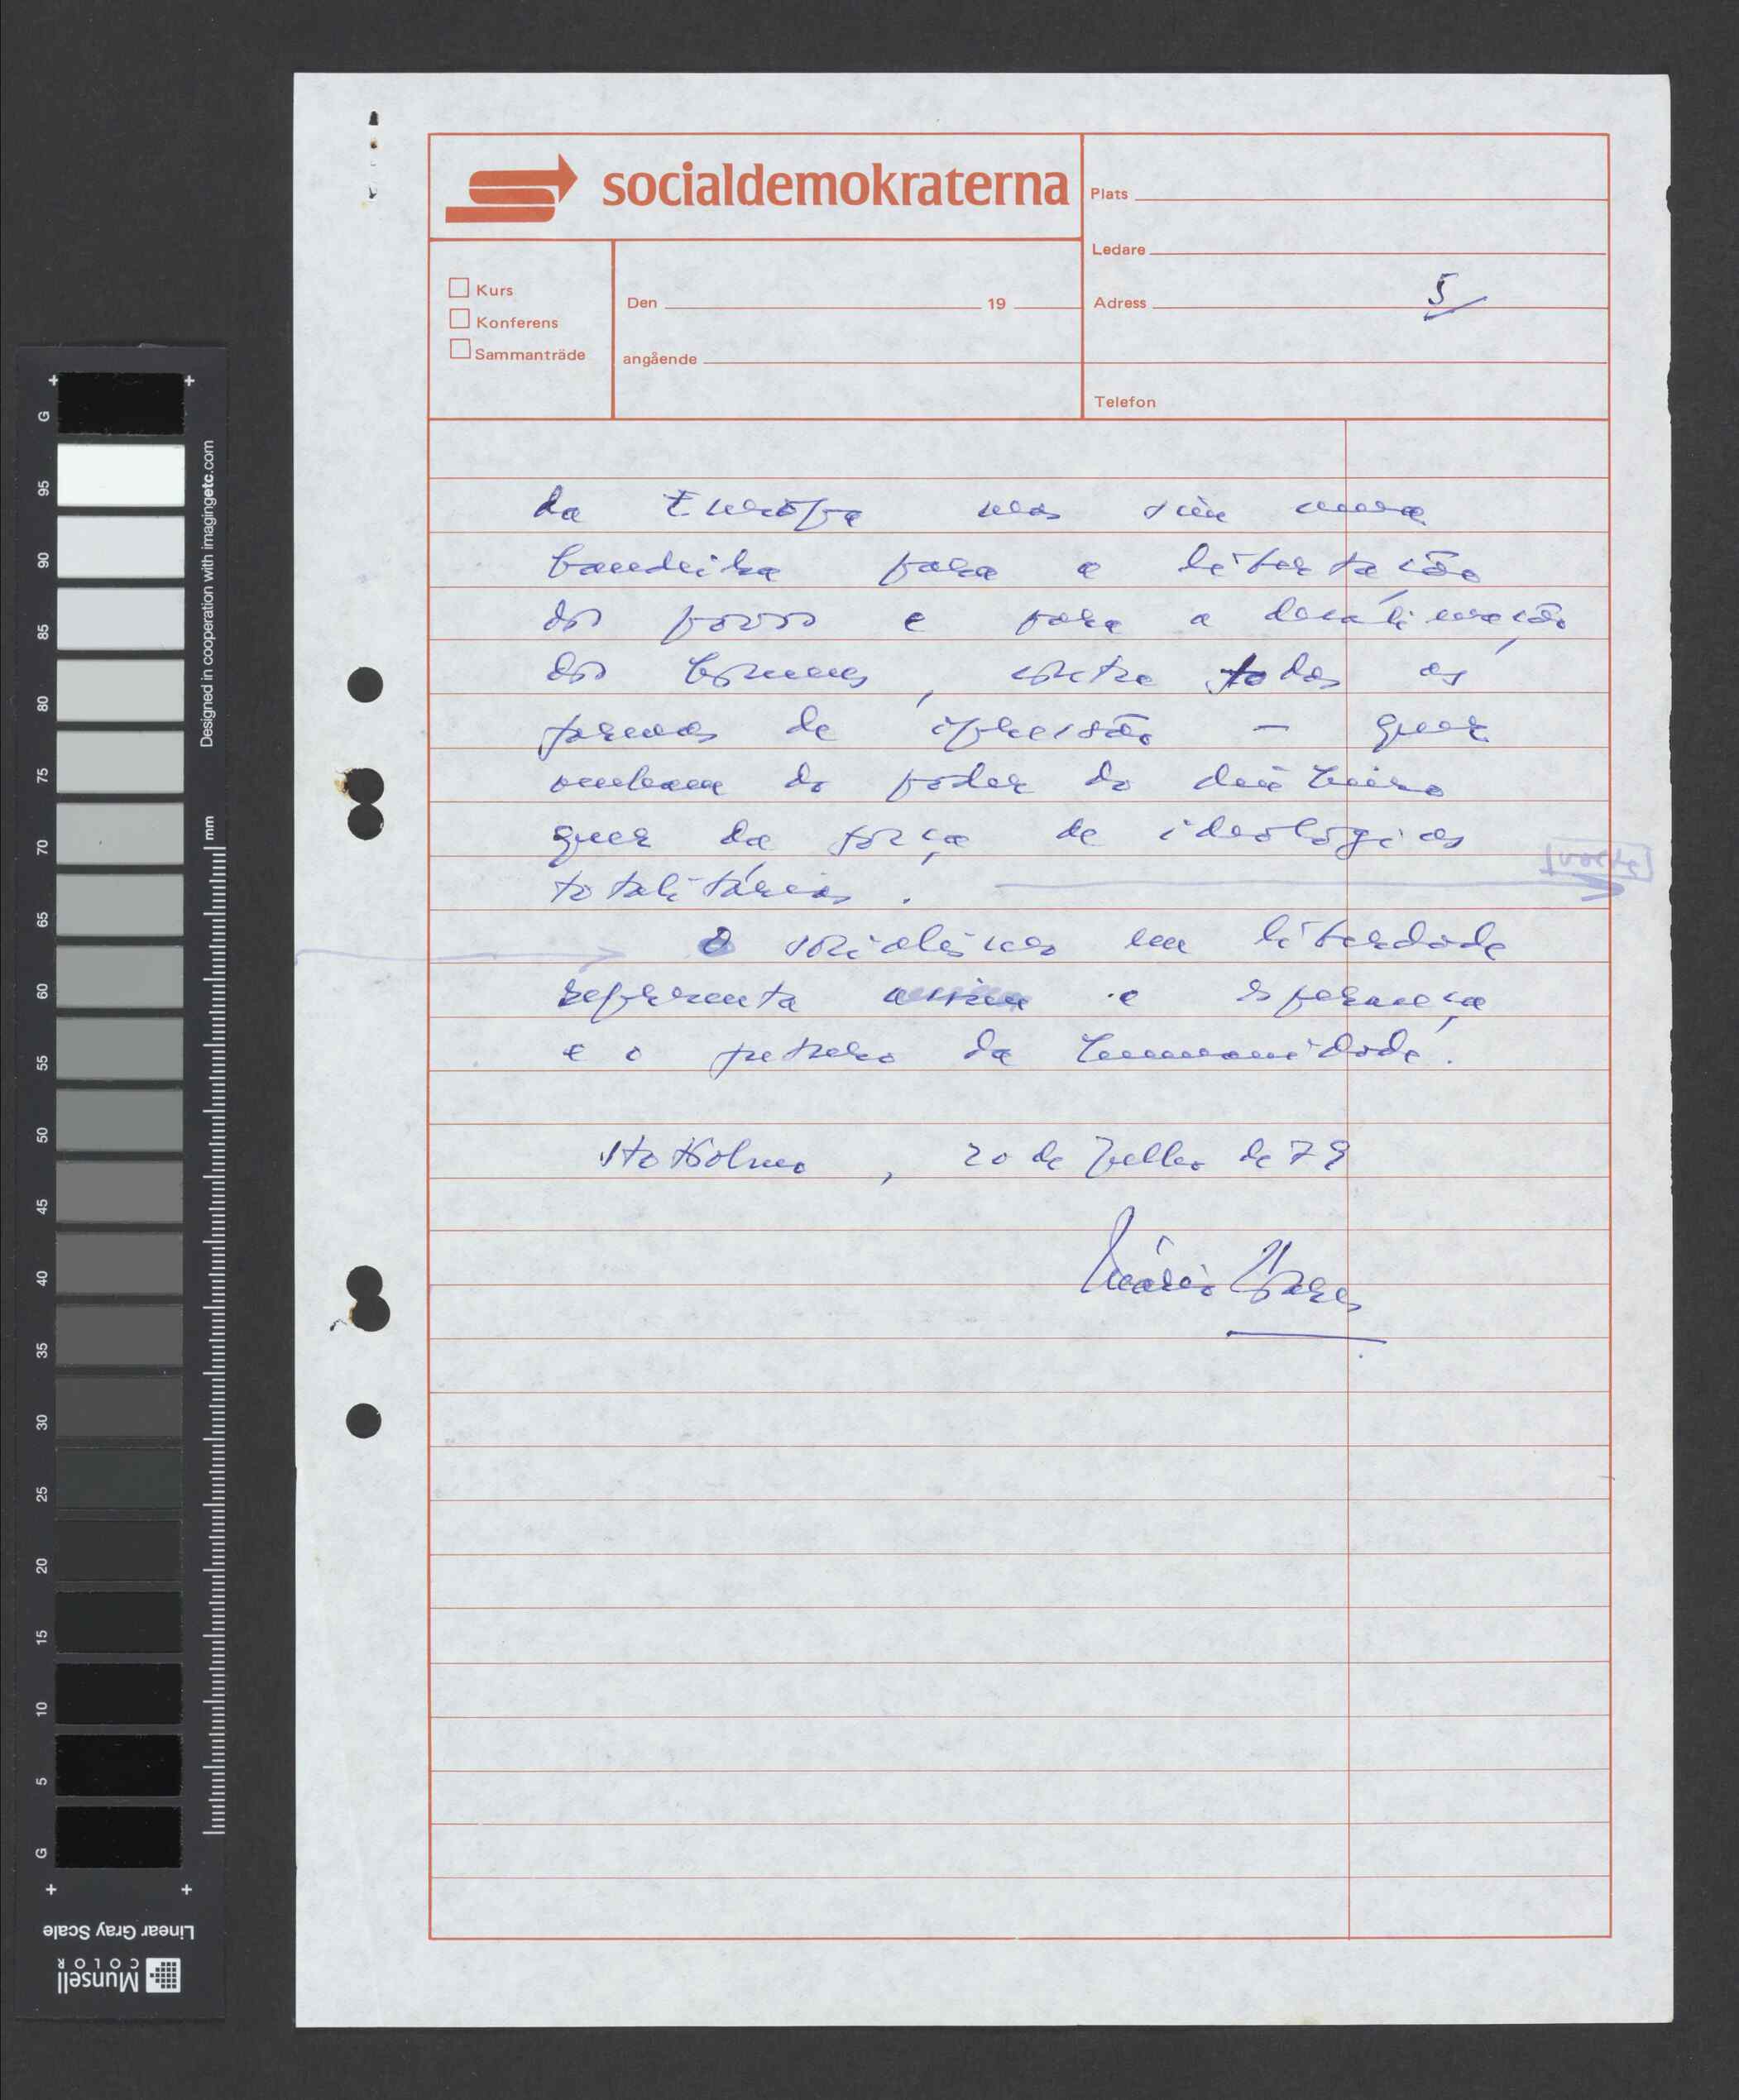 socialdemokraterna
Plats
Ledare
Kurs
Konferens
Sammanträde
Den 19
angående
Adress 5
Telefon
da Europa mas sim uma
bandeira para a libertação
dos povos e para a
dos homens, contra todas as
formas de opressão — quer
venham do poder do dinheiro
quer da força de ideologias
totalitárias.
[volte]
O socialismo em liberdade
representa assim a esperança
e o futuro da humanidade.
Stokolmo, 20 de Julho de 79
Mário Soares
Designed in cooperation with imagingetc.com
mm
G 95 90 85 80 75 70 65 60 55 50 45 40 35 30 25 20 15 10 5 G
Linear Gray Scale
Munsell
COLOR